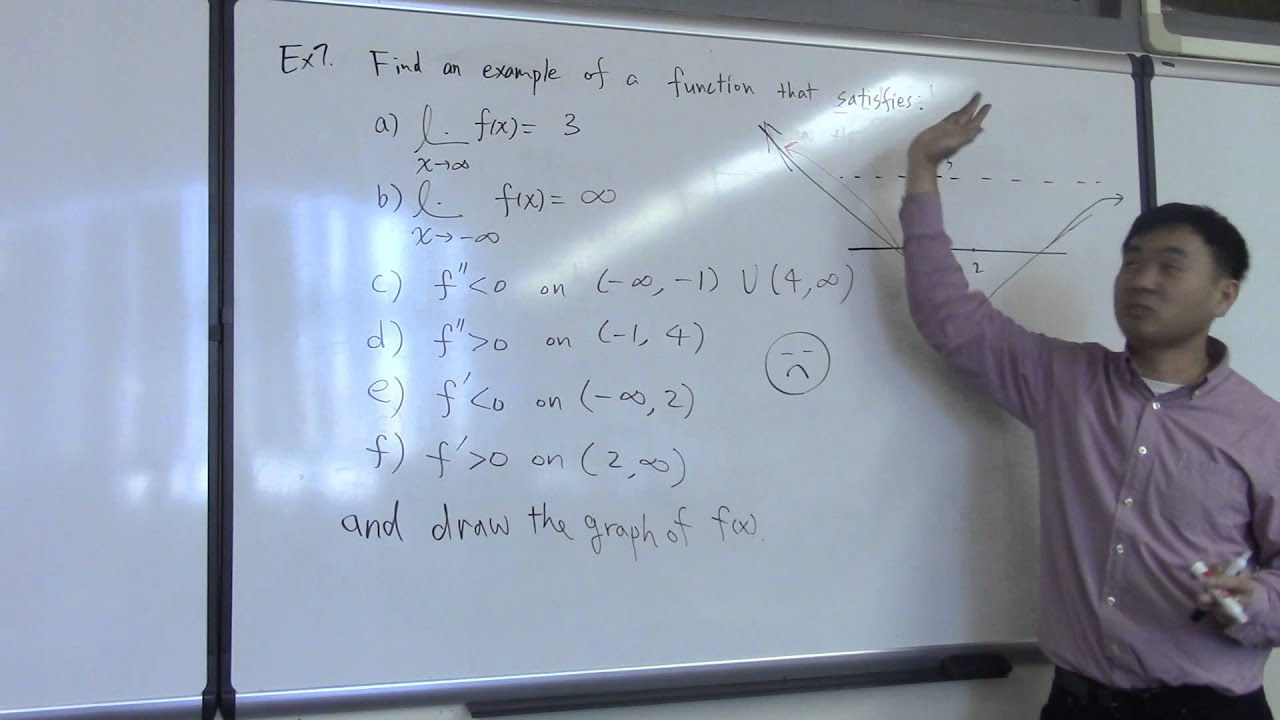 Ex7. Find an example of a function that satisfies:
a) lim f(x) = 3
x→∞
b) lim f(x) = ∞
x→-∞
c) f''<0 on (-∞, -1) ∪ (4, ∞)
d) f''>0 on (-1, 4)
e) f'<0 on (-∞, 2)
f) f'>0 on (2, ∞)
and draw the graph of f(x).
2